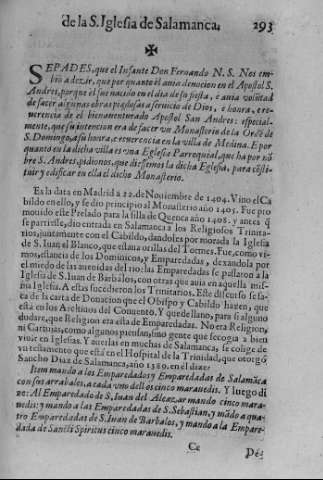 de la S. Iglesia de Salamanca. 293
SEPADES, que el Infante Don Fernando N. S. Nos em-
bió a dezir, que por quanto èl auia deuocion en el Apostol S.
Andres, porque èl fue nacido en el dia de su fiesta, e auia voluntad
de facer algunas obras piadosas a seruicio de Dios, è honra, e re-
uerencia de el bienauenturado Apostol San Andres: especial-
mente, que su intencion era de facer un Monasterio de la Ordē de
S. Domingo, a su honra, e reuerencia en la villa de Medina. E por
quanto en la dicha villa es vna Eglesia Parroquial, que ha por nō-
bre S. Andres, pidionos, que diessemos la dicha Eglesia, para cōsti-
tuir, y edificar en ella el dicho Monasterio.
Es la data en Madrid a 22. de Nouiembre de 1404. Vino el Ca
bildo en ello, y se dio principio al Monasterio año 1405. Fue pro
mouido este Prelado para la silla de Quenca año 1408. y antes q̄
se partiesse, dio entrada en Salamanca a los Religiosos Trinita-
rios, juntamente con el Cabildo, dandoles por morada la Iglesia
de S. Iuan el Blanco, que està a orillas del Tormes. Fue, como vi-
mos, estancia de los Dominicos, y Emparedadas, y dexandola por
el miedo de las auenidas del rio: las Emparedadas se passaron a la
Iglesia de S. Iuan de Barbalos, con otras que auia en aquella mis-
ma Iglesia. A estas sucedieron los Trinitarios. Este discurso se sa-
ca de la carta de Donacion que el Obispo y Cabildo hazen, que
està en los Archiuos del Conuento. Y quede llano, para si alguno
dudare, que Religion era esta de Emparedadas. No era Religion,
ni Cartujas, como algunos piensan, sino gente que se cogia a bien
viuir en Iglesias. Y auerlas en muchas de Salamanca, se colige de
vn testamento que està en el Hospital de la Trinidad, que otorgò
Sancho Diaz de Salamanca, año 1380. en el dize:
Item mando a los Emparedados y Emparedadas de Salamāca
con sus arrabales, a cada vno dellos cinco marauedis. Y luego di
ze: Al Emparedado de S. Iuan del Alcaçar mando cinco mara-
uedis: y mando a las Emparedadas de S. Sebastian, y mādo a qua-
tro Emparedadas de S. Iuan de Barbalos, y mando a la Empare-
dada de Sancti Spiritus cinco marauedis.
Cc